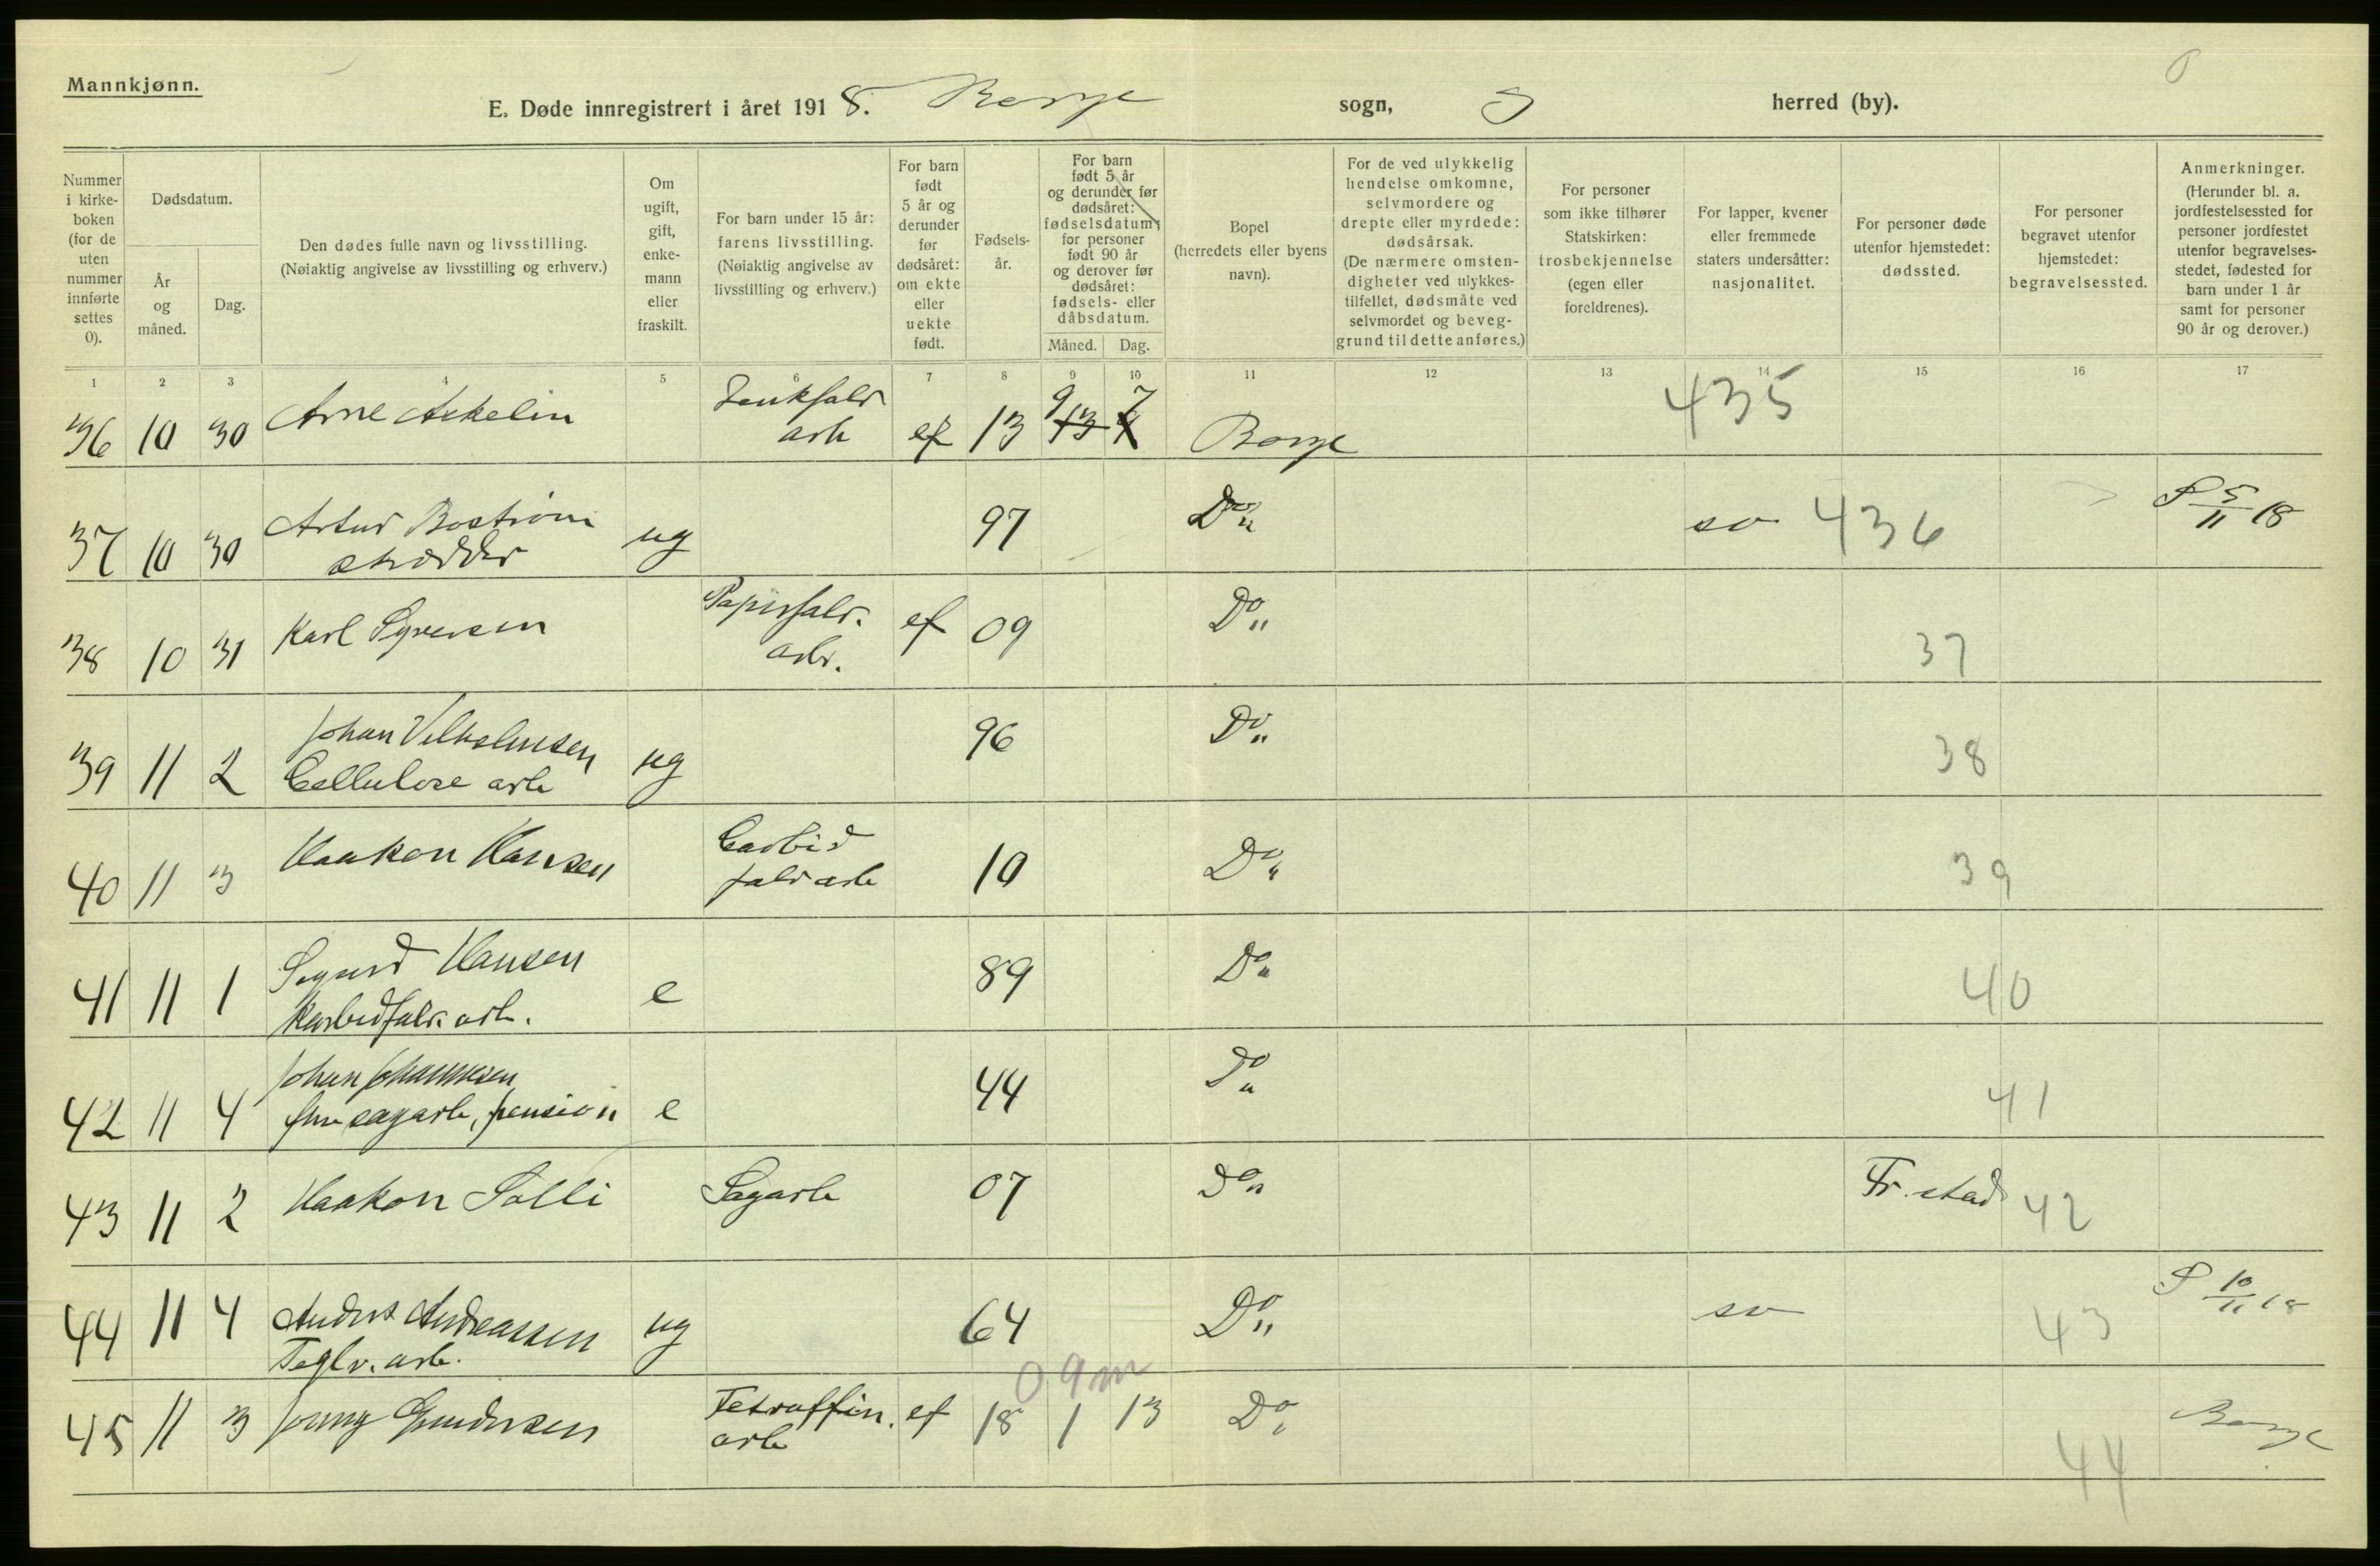 Mannkjønn.
E. Døde innregistrert i året 1918. Borge sogn, herred (by).
Nummer i kirke- boken (for de uten nummer innførte settes 0).
Dødsdatum.
År og måned.
Dag.
Den dødes fulle navn og livsstilling.
(Nøiaktig angivelse av livsstilling og erhverv.)
Om ugift, gift, enke- mann eller fraskilt.
For barn under 15 år: farens livsstilling. (Nøiaktig angivelse av livsstilling og erhverv.)
For barn født 5 år og derunder før dødsåret: om ekte eller uekte født.
Fødsels- år.
For barn født 5 år og derunder før dødsåret: fødselsdatum; for personer født 90 år og derover før dødsåret: fødsels- eller dåbsdatum.
Måned. Dag.
Bopel (herredets eller byens navn).
For de ved ulykkelig hendelse omkomne, selvmordere og drepte eller myrdede: dødsårsak. (De nærmere omsten- digheter ved ulykkes- tilfellet, dødsmåte ved selvmordet og beveg- grund til dette anføres.)
For personer som ikke tilhører Statskirken: trosbekjennelse (egen eller foreldrenes).
For lapper, kvener eller fremmede staters undersåtter: nasjonalitet.
For personer døde utenfor hjemstedet: dødssted.
For personer begravet utenfor hjemstedet: begravelsessted.
Anmerkninger. (Herunder bl. a. jordfestelsessted for personer jordfestet utenfor begravelses- stedet, fødested for barn under 1 år samt for personer 90 år og derover.)
1 2 3 4 5 6 7 8 9 10 11 12 13 14 15 16 17
36 10 30 Arne Askelin arb ef 13 9 7 Borge 435
37 10 30 Artur Boström skrædder ug 97 Do" sv 436 S 5/11 18
38 10 31 Karl Syversen Papirfabr. arb. ef 09 Do" 37
39 11 2 Johan Vilhelmsen Cellulose arb ug 96 Do" 38
40 11 3 Haakon Hansen Carbid fabr arb 10 Do" 39
41 11 1 Sigurd Hansen Karbidfabr. arb. e 89 Do" 40
42 11 4 Johan Johannesen sagarb, pension e 44 Do" 41
43 11 2 Haakon Solli Sagarb 07 Do" Fr.stad 42
44 11 4 Anders Andreassen Teglv. arb. ug 64 Do" sv 43 S 10/11 18
0 9m
45 11 3 Jonny Gundersen arb ef 18 1 13 Do" 44 Borge